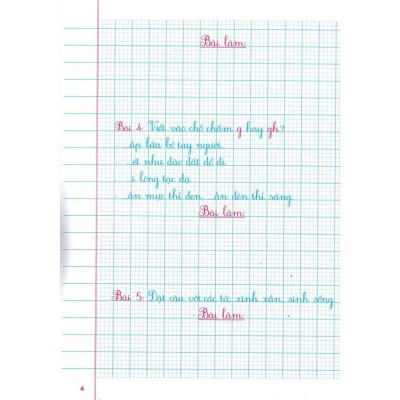 Bài làm:
Bài 4: Viết vào chỗ chấm g hay gh?
...ắp lửa bỏ tay người.
...ét như đào đất đổ đi.
...i lòng tạc dạ.
...ần mực thì đen, ...ần đèn thì sáng.
Bài làm:
Bài 5: Đặt câu với các từ: xinh xắn, sinh sống.
Bài làm:
4